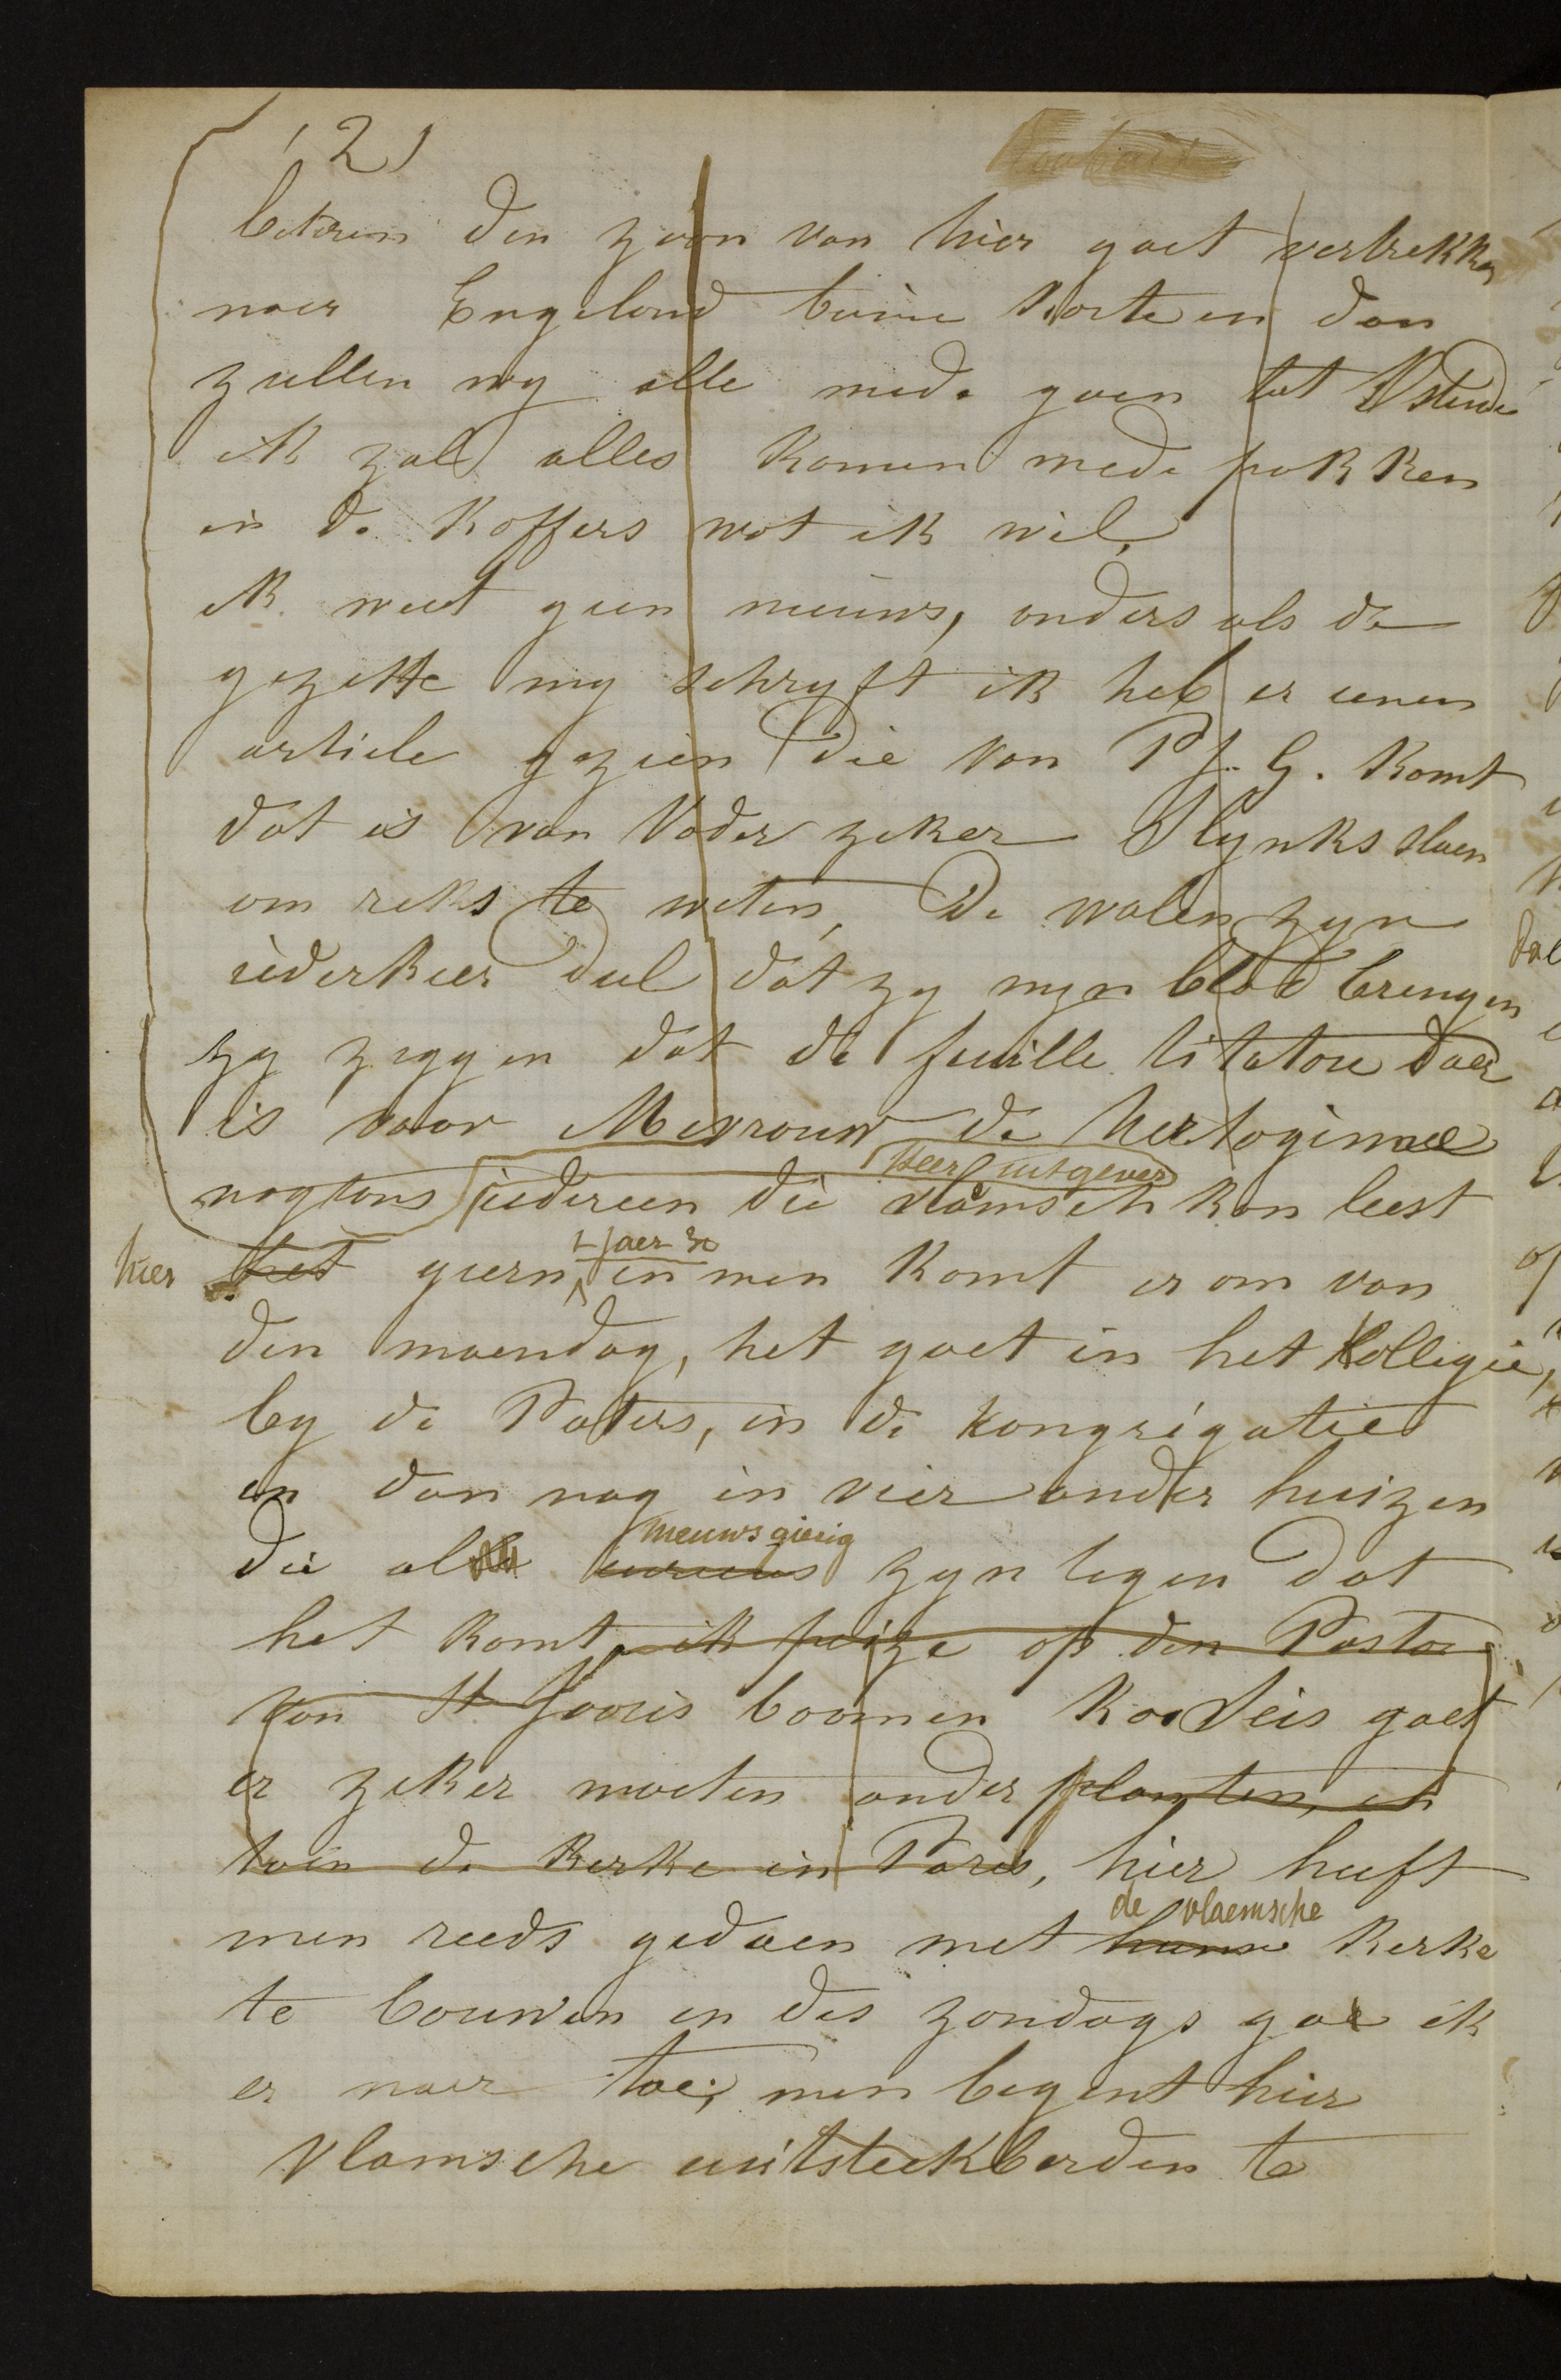 (2)
beteren den zoon van hier gaet vertrekken
naer Engeland binne korte en dan
zullen wy alle mede gaen tot Ostende
ik zal alles komen mede pakken
in de koffers wat ik wil,
ik weet geen nieuws, anders als de
gezette my schryft ik heb er eenen
article gezien die van P J. G. komt
dat is van Vader zeker Slynks slaen
om reks te weten, De walen zyn
iederkeer dul dat zy myn blad brengen
zy zeggen dat de feuille titatou daer
is voor Mevrouw de hertoginne
nogtans iedereen die vlamsch kan leest
heer uitgever
hier het geern en men komt er om van
den maendag, het gaet in het Kollegie,
by de Paters, in de kongregatie
en dan nog in vier ander huizen
die al curieus zyn tegen dat
nieuwsgierig
het komt, ik peize op den Pastor
van St Jooris boomen koodeis gaet
er zeker moeten onder planten, en
toen de kerke in Paris, hier heeft
men reeds gedaen met hunne kerke
de vlaemsche
te bouwen en des zondags gae ik
er naer toe; men begent hier
vlamsche uitsteekberden te